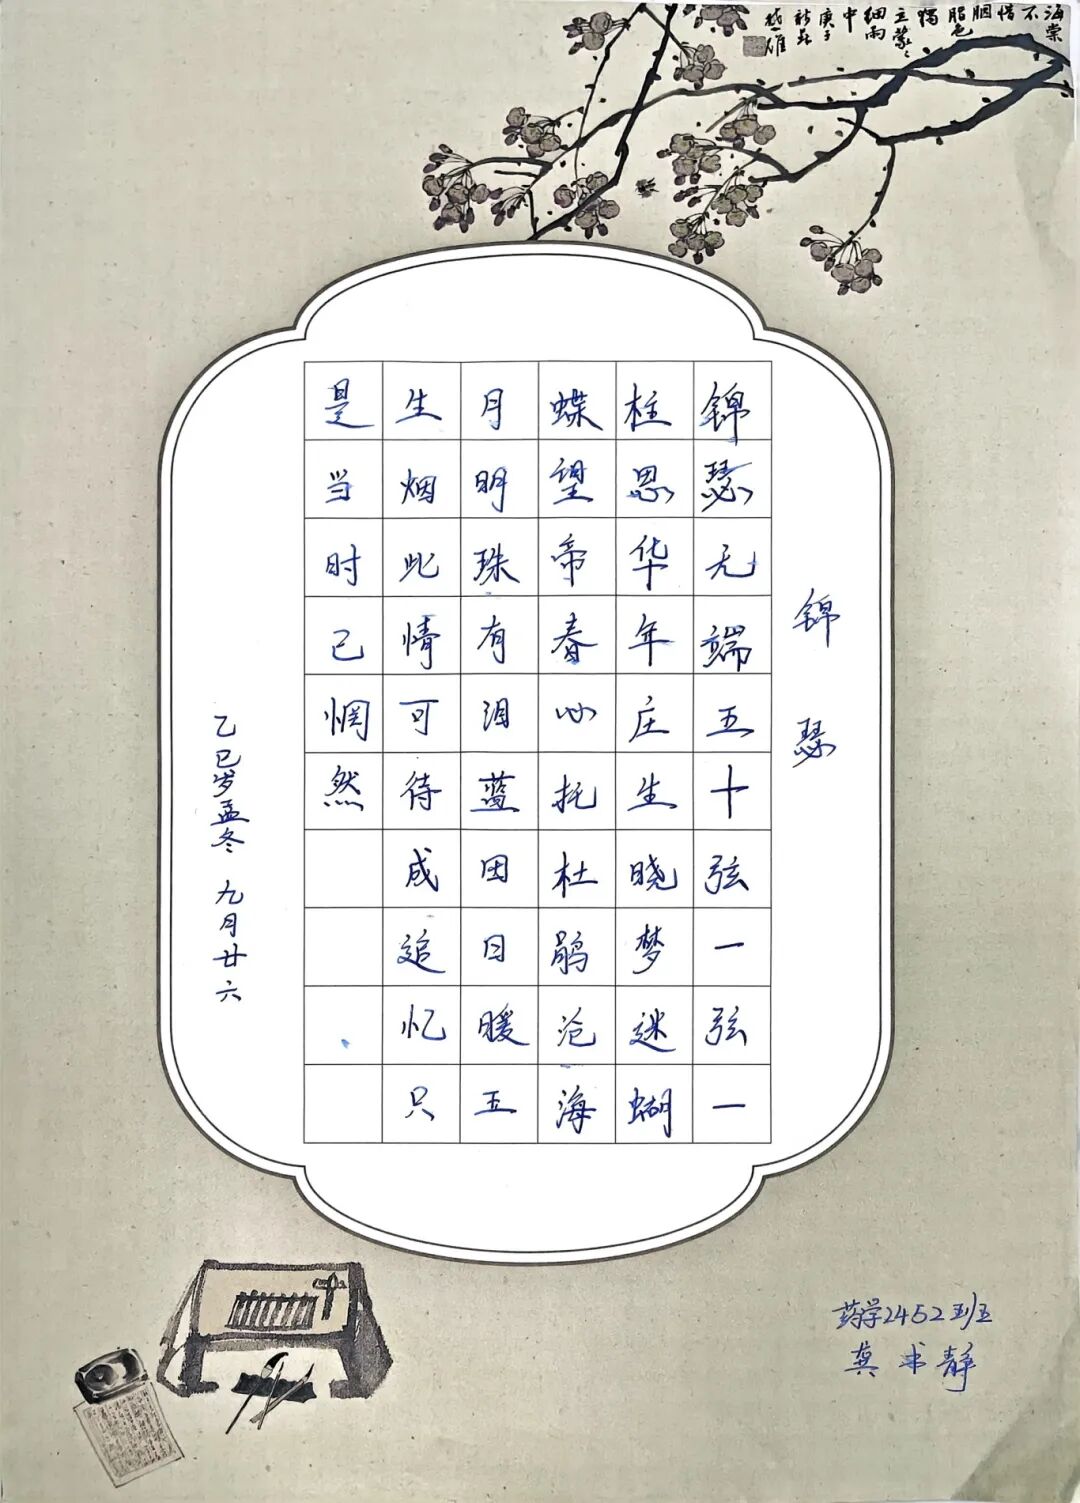 海棠
不
惜
胭
脂色
独
立蒙〻
细雨
中
庚子
锦瑟
锦瑟无端五十弦一弦一
柱思华年庄生晓梦迷蝴
蝶望帝春心托杜鹃沧海
月明珠有泪蓝田日暖玉
生烟此情可待成追忆只
是当时已惘然
乙巳岁孟冬 九月廿六
药学2452班
龚书静